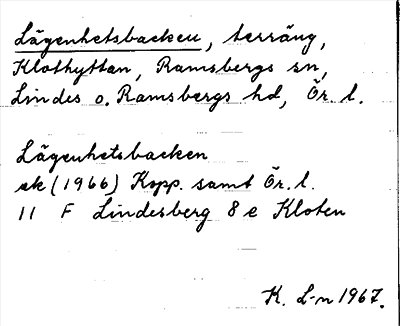 Lägenhetsbacken, terräng,
Klothyttan, Ramsbergs sn,
Lindes o. Ramsbergs hd, Ör. l.
Lägenhetsbacken
ek (1966) Kopp. samt Ör. l.
11 F Lindesberg 8 e Kloten
K. L-n 1967.